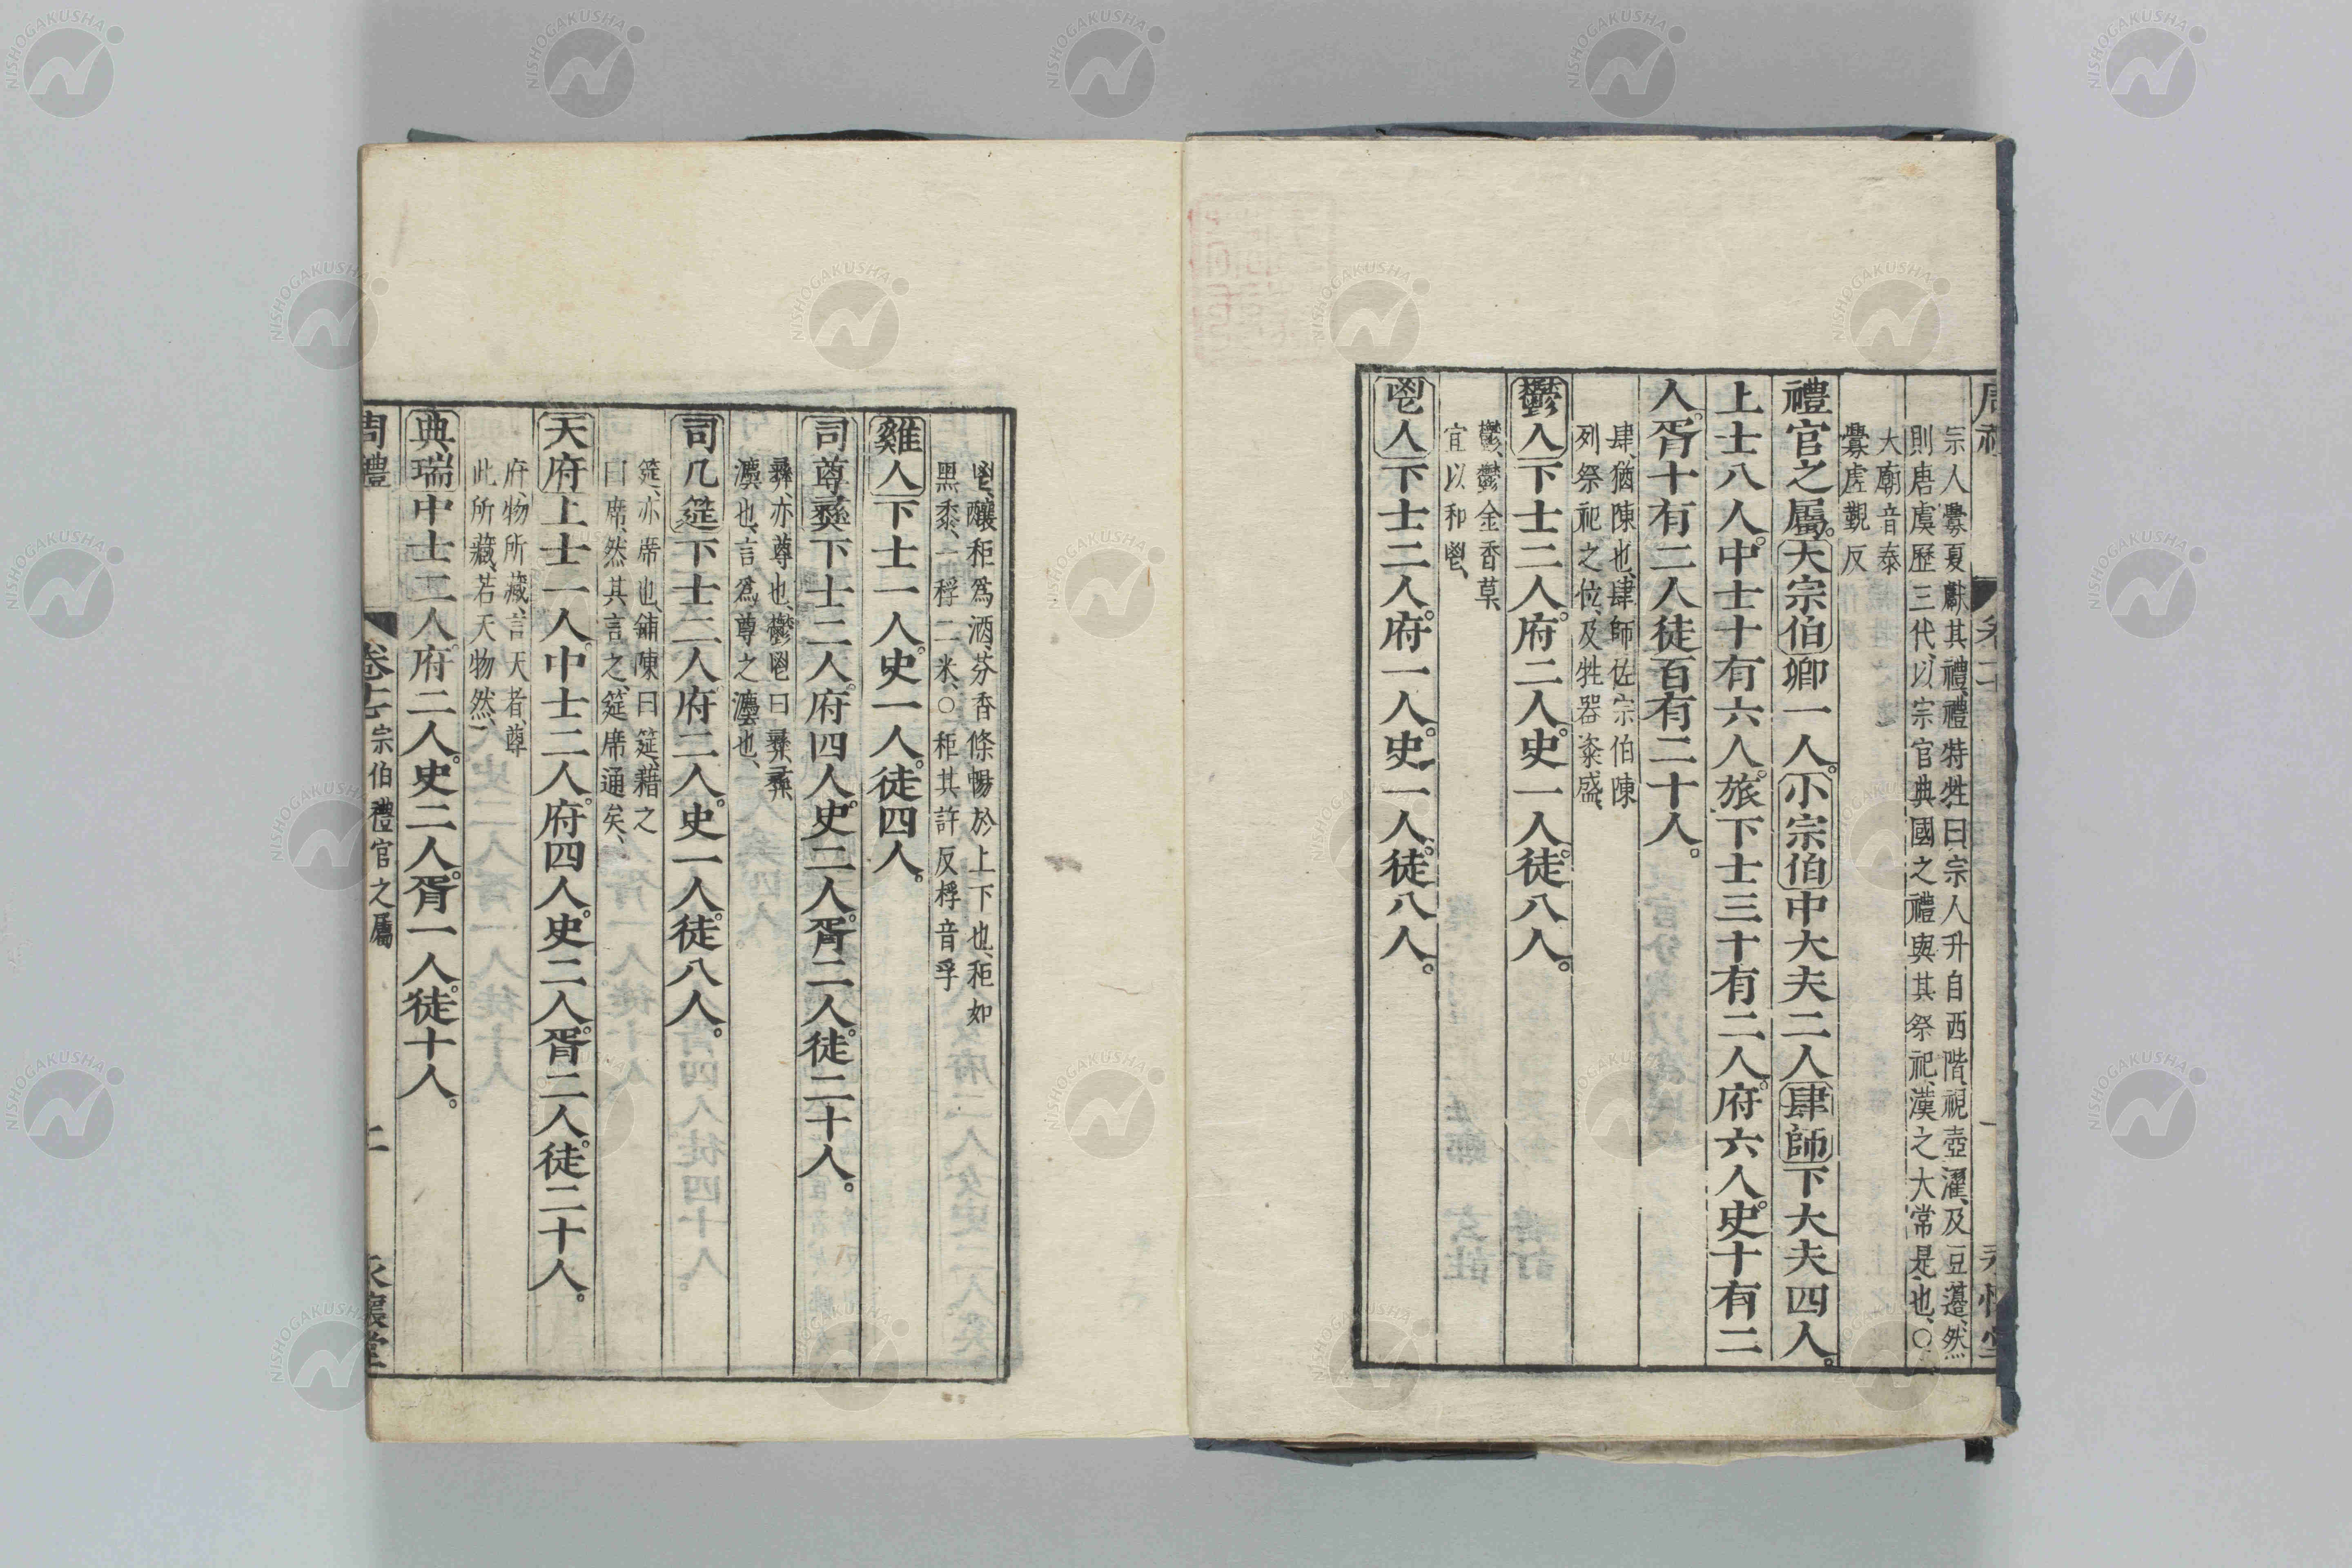 宗人釁夏獻其禮、禮特牲曰宗人升自西階、視壺濯、及豆籩、然
則唐虞歷三代、以宗官典國之禮與其祭祀、漢之大常是也、○
大廟音泰
釁虗覲反
禮官之屬。大宗伯卿一人。小宗伯中大夫二人肆師下大夫四人。
上士八人。中士十有六人。旅下士三十有二人。府六人。史十有二
人。胥十有二人徒百有二十人。
肆、猶陳也、肆師佐宗伯陳
列祭祀之位、及牲器粢盛、
鬱人下士二人。府二人。史一人。徒八人。
鬱、鬱金香草、
宜以和鬯、
鬯人下士二人。府一人。史一人。徒八人。
鬯、釀秬爲酒、芬香條暢於上下也、秬如
黑黍、一稃二米、○秬其許反稃音孚
雞人下士一人。史一人。徒四人。
司尊彝下士二人。府四人。史二人。胥二人。徒二十人。
彝、亦尊也、鬱鬯曰彝、彝、
灋也、言爲尊之灋也、
司几筵下士二人府二人。史一人。徒八人。
筵、亦席也、鋪陳曰筵、藉之
曰席、然其言之、筵席通矣、
天府上士一人。中士二人。府四人。史二人。胥二人。徒二十人。
府、物所藏、言天者、尊
此所藏、若天物然、
典瑞中士二人。府二人。史二人。胥一人。徒十人。
周禮
宗伯禮官之屬
二
永懷堂
NISHOGAKUSHA